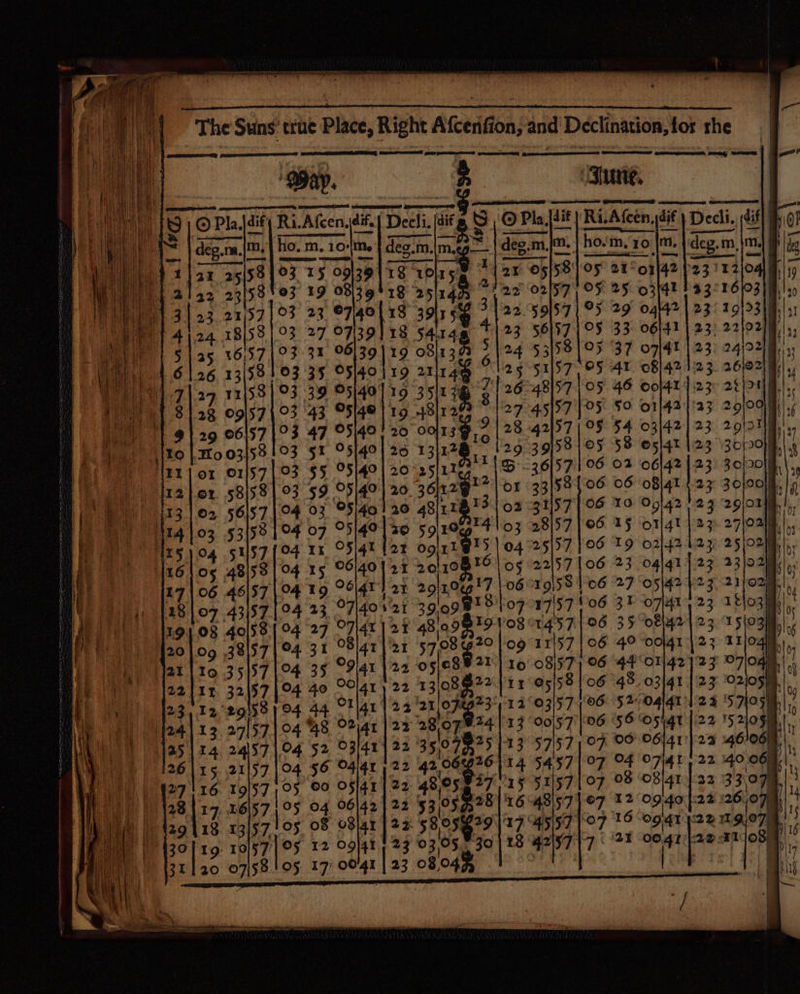 The Suns true Place, Right Ascension, and Declination, for the
May. June.
D ☉ Pla. dif Ri. Ascen. dif. Decli. dif D ☉ Pla. dif Ri. Ascen. dif Decli. dif
deg. m. m. ho. m. 10 m. deg. m. m. deg. m. m. ho. m. 10 m. deg. m. m.
1 21 25 58 03 15 09 39 18 10 15 1 21 05 58 05 21 01 42 23 12 04
2 22 23 58 03 19 08 39 18 25 14 2 22 02 57 05 25 03 41 23 16 03
3 23 21 57 03 23 07 40 18 39 15 3 22 59 57 05 29 04 42 23 19 03
4 24 18 58 03 27 07 39 18 54 14 4 23 56 57 05 33 06 41 23 22 02
5 25 16 57 03 31 06 39 19 08 13 5 24 53 58 05 37 07 41 23 24 02
6 26 13 58 03 35 05 40 19 21 14 6 25 51 57 05 41 08 42 23 26 02
7 27 11 58 03 39 05 40 19 35 13 7 26 48 57 05 46 00 41 23 28 01
8 28 09 57 03 43 05 40 19 48 12 8 27 45 57 05 50 01 42 23 29 00
9 29 06 57 03 47 05 40 20 00 13 9 28 42 57 05 54 03 42 23 29 01
10 ♊ 0 03 58 03 51 05 40 20 13 12 10 29 39 58 05 58 05 41 23 30 00
11 01 01 57 03 55 05 40 20 25 11 11 ♋ 36 57 06 02 06 42 23 30 00
12 01 58 58 03 59 05 40 20 36 12 12 01 33 58 06 06 08 41 23 30 00
13 02 56 57 04 03 05 40 20 48 11 13 02 31 57 06 10 09 42 23 29 01
14 03 53 58 04 07 05 40 20 59 10 14 03 28 57 06 15 01 41 23 27 02
15 04 51 57 04 11 05 41 21 09 11 15 04 25 57 06 19 02 42 23 25 02
16 05 48 58 04 15 06 40 21 20 10 16 05 22 57 06 23 04 41 23 23 02
17 06 46 57 04 19 06 41 21 29 10 17 06 19 58 06 27 05 42 23 21 02
18 07 43 57 04 23 07 40 21 39 09 18 07 17 57 06 31 07 41 23 18 03
19 08 40 58 04 27 07 41 21 48 09 19 08 14 57 06 35 08 42 23 15 03
20 09 38 57 04 31 08 41 21 57 08 20 09 11 57 06 40 00 41 23 11 04
21 10 35 57 04 35 09 41 22 05 08 21 10 08 57 06 44 01 42 23 07 04
22 11 32 57 04 40 00 41 22 13 08 22 11 05 58 06 48 03 41 23 02 05
23 12 29 58 04 44 01 41 22 21 07 23 12 03 57 06 52 04 41 22 57 05
24 13 27 57 04 48 02 41 22 28 07 24 13 00 57 06 56 05 41 22 52 05
25 14 24 57 04 52 03 41 22 35 07 25 13 57 57 07 00 06 41 22 46 06
26 15 21 57 04 56 04 41 22 42 06 26 14 54 57 07 04 07 41 22 40 06
27 16 19 57 05 00 05 41 22 48 05 27 15 51 57 07 08 08 41 22 33 07
28 17 16 57 05 04 06 42 22 53 05 28 16 48 57 07 12 09 40 22 26 07
29 18 13 57 05 08 08 41 22 58 05 29 17 45 57 07 16 09 41 22 19 07
30 19 10 57 05 12 09 41 23 03 05 30 18 42 57 7 21 00 41 22 11 08
31 20 07 58 05 17 00 41 23 08 04